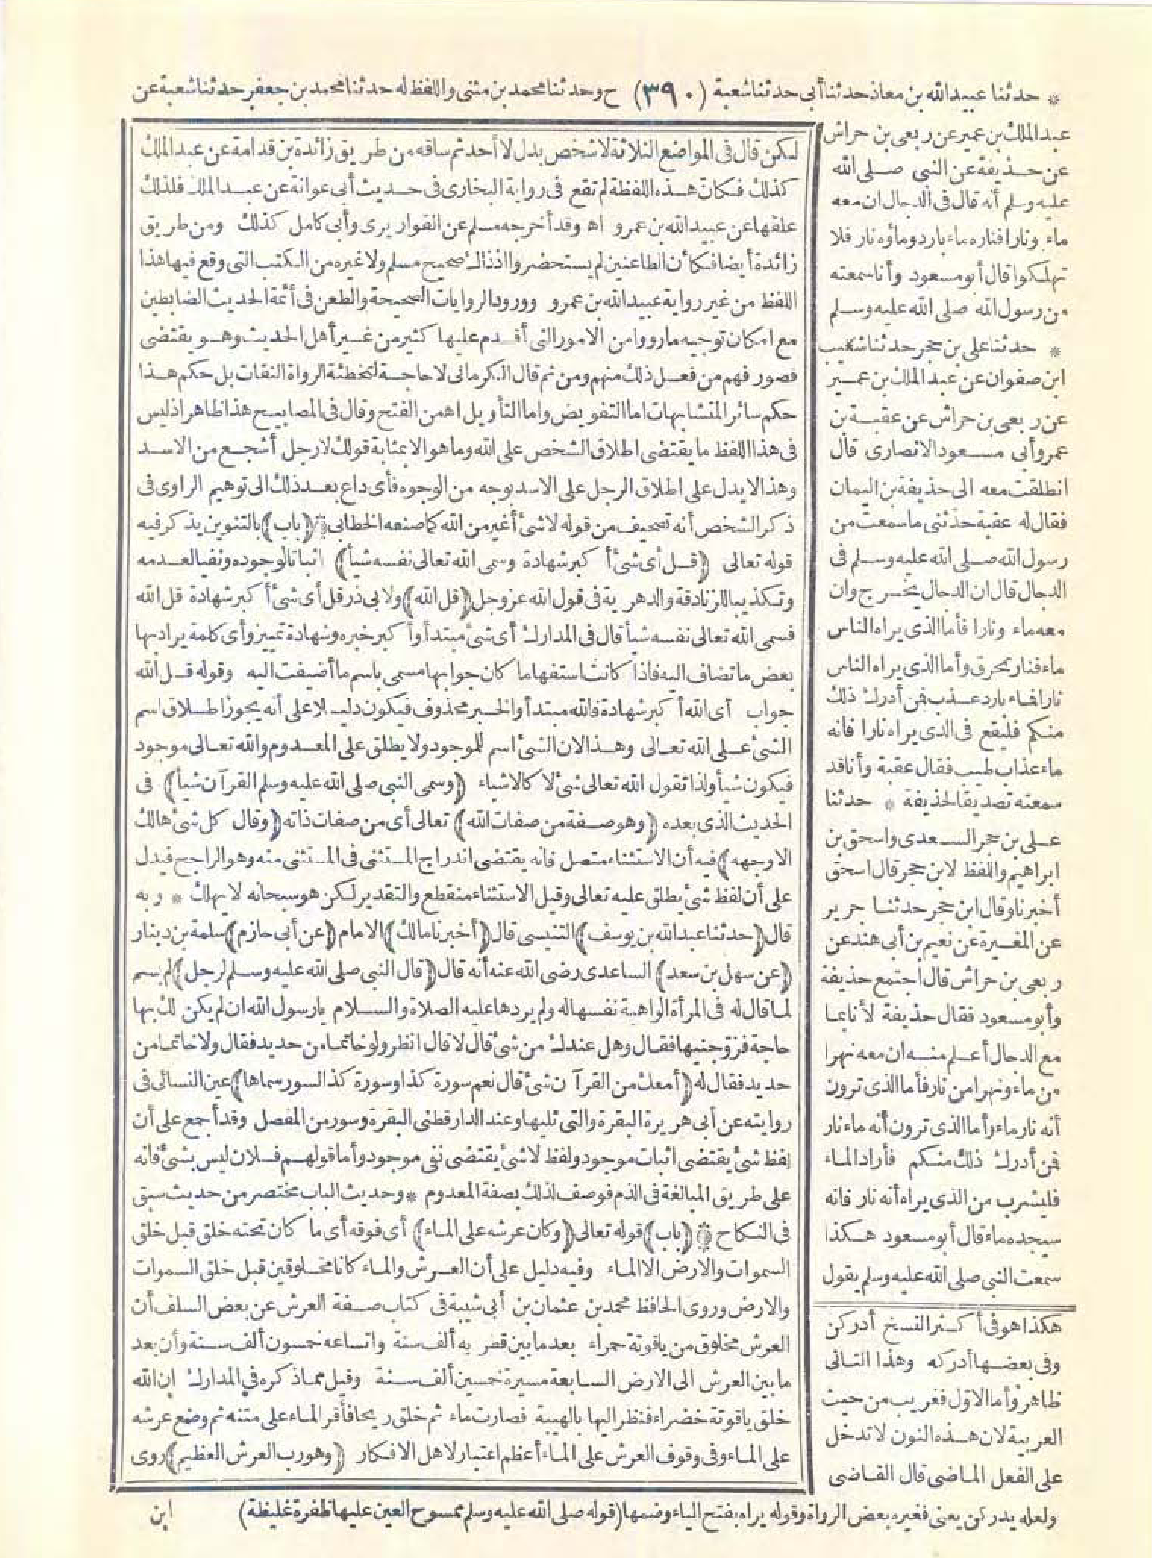 * حدثنا عبيد الله بن معاذ حدثنا أبي حدثنا شعبة (٣٩٠) ح وحدثنا محمد بن مثنى واللفظ له حدثنا محمد بن جعفر حدثنا شعبة عن
عبد الملك بن عمير عن ربعي بن حراش
عن حذيفة عن النبي صلى الله
عليه وسلم أنه قال في الدجال ان معه
ماء ونارا فناره ماء بارد وماؤه نار فلا
تهلكوا قال أبو مسعود وأنا سمعته
من رسول الله صلى الله عليه وسلم
* حدثنا علي بن حجر حدثنا شعيب
ابن صفوان عن عبد الملك بن عمير
عن ربعي بن حراش عن عقبة بن
عمرو أبي مسعود الانصاري قال
انطلقت معه الى حذيفة بن اليمان
فقال له عقبة حدثني ما سمعت من
رسول الله صلى الله عليه وسلم في
الدجال قال ان الدجال يخرج وان
معه ماء ونارا فأما الذي يراه الناس
ماء فنار تحرق وأما الذي يراه الناس
نارا فماء بارد عذب فمن أدرك ذلك
منكم فليقع في الذي يراه نارا فانه
ماء عذاب طيب فقال عقبة وأنا قد
سمعته تصديقا لحذيفة * حدثنا
علي بن حجر السعدي واسحق بن
ابراهيم واللفظ لابن حجر قال اسحق
أخبرنا وقال ابن حجر حدثنا جرير
عن المغيرة عن نعيم بن أبي هند عن
ربعي بن حراش قال اجتمع حذيفة
وأبو مسعود فقال حذيفة لأنا بما
مع الدجال أعلم منه ان معه نهرا
من ماء ونهرا من نار فأما الذي ترون
أنه نار ماء وأما الذي ترون أنه ماء نار
فمن أدرك ذلك منكم فأراد الماء
فليشرب من الذي يراه أنه نار فانه
سيجده ماء قال أبو مسعود هكذا
سمعت النبي صلى الله عليه وسلم يقول
هكذا هو في أكثر النسخ أدركن
وفي بعضها أدركه وهذا الثاني
ظاهر وأما الاول فغريب من حيث
العربية لان هذه النون لا تدخل
على الفعل الماضي قال القاضي
ولعله يدركن يعني فغيره بعض الرواة وقوله يراه بفتح الياء وضمها (قوله صلى الله عليه وسلم ممسوح العين عليها ظفرة غليظة)
لكن قال في المواضع الثلاثة لا شخص بدل لا أحد ثم ساقه من طريق زائدة بن قدامة عن عبد الملك
كذلك فكان هذه اللفظة لم تقع في رواية البخاري في حديث أبي عوانة عن عبد الملك فلذلك
علقها عن عبيد الله بن عمرو اه وقد أخرجه مسلم عن القواريري وأبي كامل كذلك ومن طريق
زائدة أيضا فكأن الطاعنين لم يستحضروا اذ ذاك صحيح مسلم ولا غيره من الكتب التي وقع فيها هذا
اللفظ من غير رواية عبيد الله بن عمرو وورود الروايات الصحيحة والطعن في أئمة الحديث الضابطين
مع امكان توجيه ما رووا من الامور التي أقدم عليها كثير من غير أهل الحديث وهو يقتضي
قصور فهم من فعل ذلك منهم ومن ثم قال الكرماني لا حاجة لتخطئة الرواة الثقات بل حكم هذا
حكم سائر المتشابهات اما التفويض واما التأويل اه من الفتح وقال في المصابيح هذا ظاهر اذ ليس
في هذا اللفظ ما يقتضي اطلاق الشخص على الله وما هو الا بمثابة قولك لا رجل أشجع من الاسد
وهذا لا يدل على اطلاق الرجل على الاسد بوجه من الوجوه فأي داع بعد ذلك الى توهيم الراوي في
ذكر الشخص أنه تصحيف من قوله لا شئ أغير من الله كما صنعه الخطابي (باب) بالتنوين يذكر فيه
قوله تعالى (قل أي شئ أكبر شهادة وسمى الله تعالى نفسه شيأ) اثباتا لوجوده ونفيا لعدمه
وتكذيبا للزنادقة والدهرية في قول الله عز وجل (قل الله) ولابي ذر قل أي شئ أكبر شهادة قل الله
فسمى الله تعالى نفسه شيأ قال في المدارك أي شئ مبتدأ وأكبر خبره وشهادة تمييز وأي كلمة يراد بها
بعض ما تضاف اليه فاذا كانت استفهاما كان جوابها مسمى باسم ما أضيفت اليه وقوله قل الله
جواب أي الله أكبر شهادة فالله مبتدأ والخبر محذوف فيكون دليلا على أنه يجوز اطلاق اسم
الشئ على الله تعالى وهذا لان الشئ اسم للموجود ولا يطلق على المعدوم والله تعالى موجود
فيكون شيأ ولذا تقول الله تعالى شئ لا كالاشياء (وسمى النبي صلى الله عليه وسلم القرآن شيأ) في
الحديث الذي بعده (وهو صفة من صفات الله) تعالى أي من صفات ذاته (وقال كل شئ هالك
الا وجهه) فيه أن الاستثناء متصل فانه يقتضي اندراج المستثنى في المستثنى منه وهو الراجح فيدل
على أن لفظ شئ يطلق عليه تعالى وقيل الاستثناء منقطع والتقدير لكن هو سبحانه لا يهلك * وبه
قال (حدثنا عبد الله بن يوسف) التنيسي قال (أخبرنا مالك) الامام (عن أبي حازم) سلمة بن دينار
(عن سهل بن سعد) الساعدي رضي الله عنه أنه قال (قال النبي صلى الله عليه وسلم لرجل) لم يسم
لما قال له في المرأة الواهبة نفسها له ولم يردها عليه الصلاة والسلام يا رسول الله ان لم يكن لك بها
حاجة فزوجنيها فقال وهل عندك من شئ قال لا قال انظر ولو خاتما من حديد فقال ولا خاتما من
حديد فقال له (أمعك من القرآن شئ قال نعم سورة كذا وسورة كذا لسور سماها) عين النسائي في
روايته عن أبي هريرة البقرة والتي تليها وعند الدارقطني البقرة وسور من المفصل وقد أجمع على أن
لفظ شئ يقتضي اثبات موجود ولفظ لا شئ يقتضي نفي موجود وأما قولهم فلان ليس بشئ فانه
على طريق المبالغة في الذم فوصف لذلك بصفة المعدوم * وحديث الباب مختصر من حديث سبق
في النكاح (باب) قوله تعالى (وكان عرشه على الماء) أي فوقه أي ما كان تحته خلق قبل خلق
السموات والارض الا الماء وفيه دليل على أن العرش والماء كانا مخلوقين قبل خلق السموات
والارض وروى الحافظ محمد بن عثمان بن أبي شيبة في كتاب صفة العرش عن بعض السلف أن
العرش مخلوق من ياقوتة حمراء بعد ما بين قطريه ألف سنة واتساعه خمسون ألف سنة وأن بعد
ما بين العرش الى الارض السابعة مسيرة خمسين ألف سنة وقيل مما ذكره في المدارك ان الله
خلق ياقوتة خضراء فنظر اليها بالهيبة فصارت ماء ثم خلق ريحا فأقر الماء على متنه ثم وضع عرشه
على الماء وفي وقوف العرش على الماء أعظم اعتبار لاهل الافكار (وهو رب العرش العظيم) روى
ابن